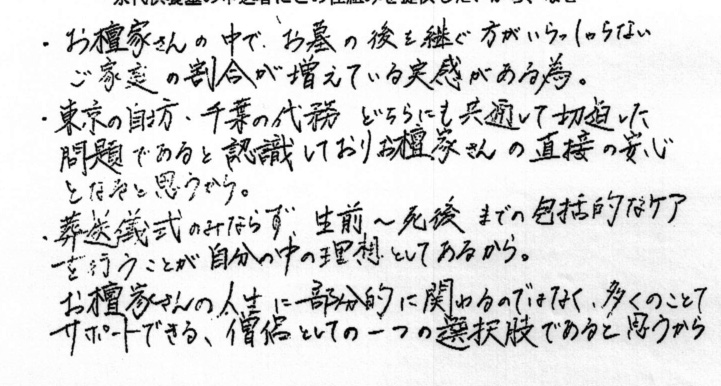 ・お檀家さんの中で、お墓の後を継ぐ方がいらっしゃらない
ご家庭の割合が増えている実感がある為。
・東京の自坊・千葉の代務 どちらにも共通して切迫した
問題であると認識しておりお檀家さんの直接の安心
となると思うから。
・葬送儀式のみならず、生前〜死後までの包括的なケア
を行うことが自分の中の理想としてあるから。
お檀家さんの人生に部分的に関わるのではなく、多くのことで
サポートできる、僧侶としての一つの選択肢であると思うから